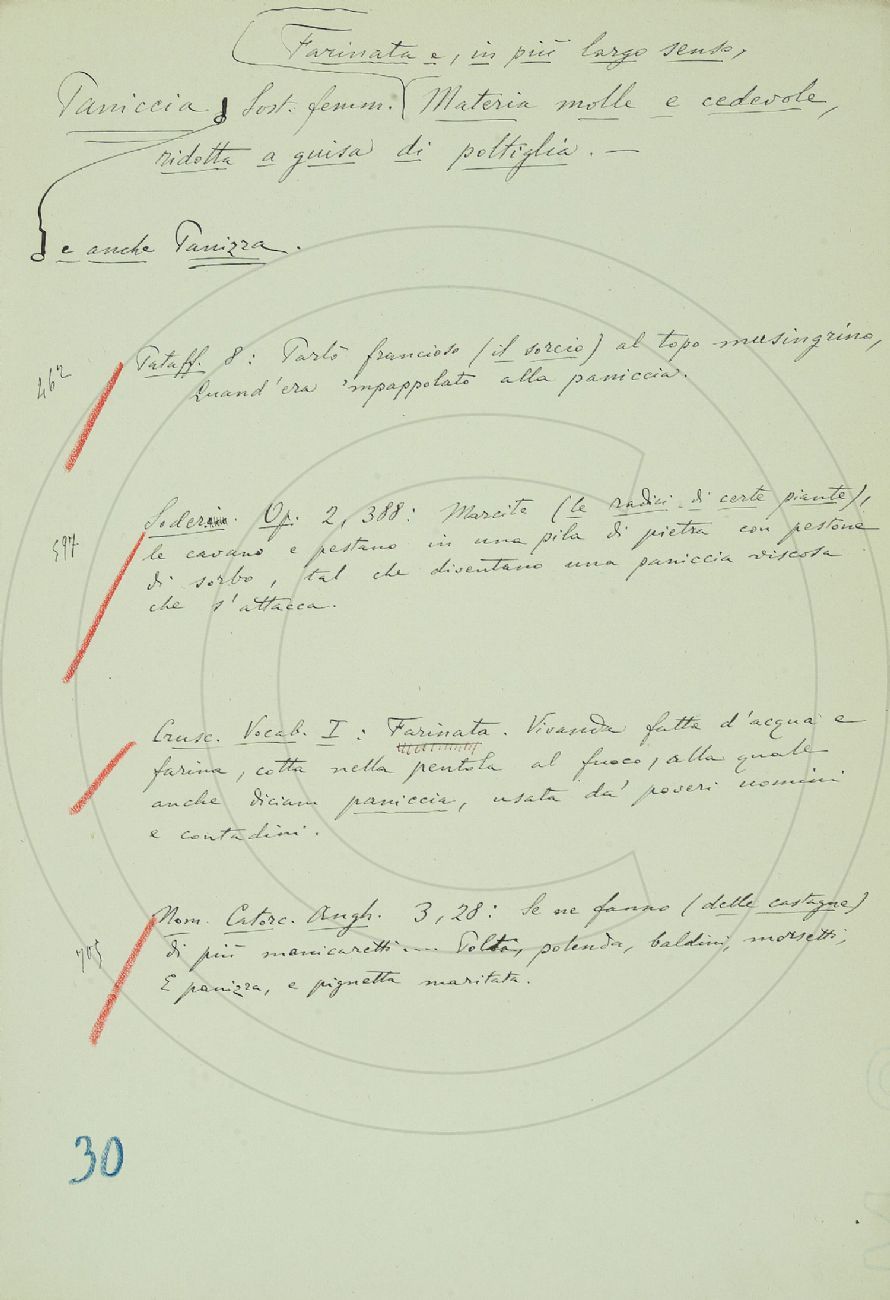 Farinata e, in più largo senso,
Paniccia. Sost. femm. Materia molle e cedevole,
ridotta a guisa di poltiglia. —
e anche Panizza.
462
Pataff. 8: Parlò francioso (il sorcio) al topo musingrino,
Quand'era 'mpappolato alla paniccia.
597
Soderin. Op. 2, 388: Marcite (le radici di certe piante),
le cavano e pestano in una pila di pietra con pestone
di sorbo, tal che diventano una paniccia viscosa
che s'attacca.
Crusc. Vocab. I: Farinata. Vivanda fatta d'acqua e
farina, cotta nella pentola al fuoco, alla quale
anche diciam paniccia, usata da' poveri uomini
e contadini.
705
Nom. Catorc. Angh. 3, 28: Se ne fanno (delle castagne)
di più manicaretti.... Polta, polenda, baldini, morsetti,
E panizza, e pignetta maritata.
30